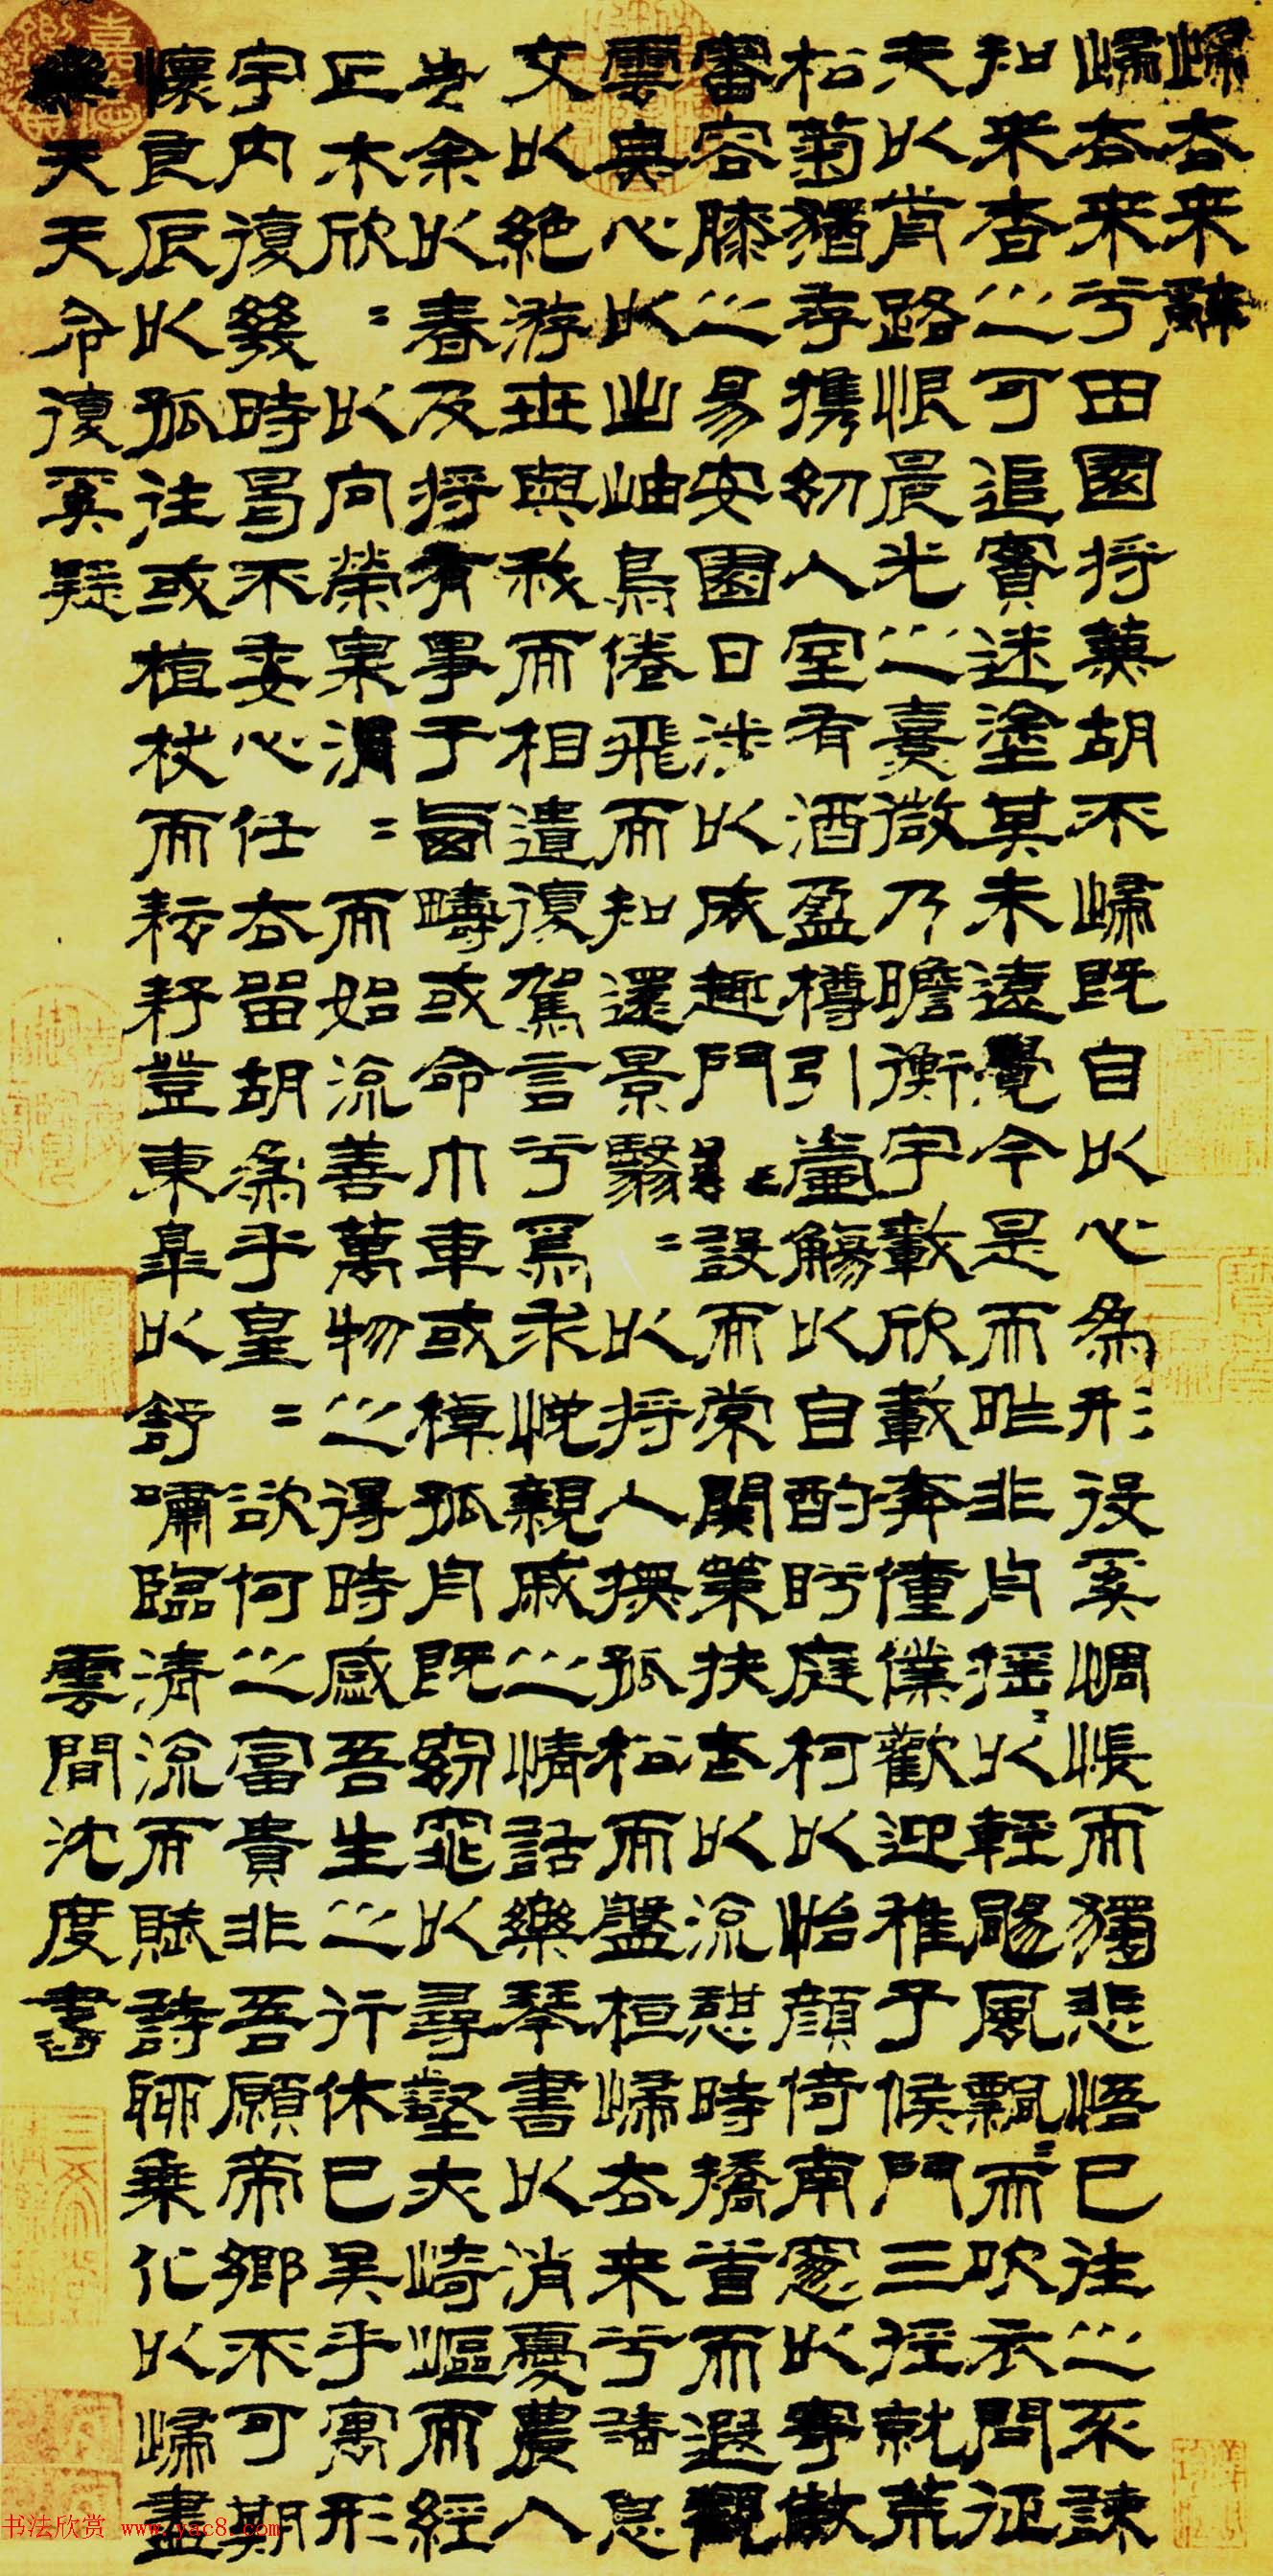 歸去来辭
歸去来兮田園将蕪胡不歸既自以心為形役奚惆悵而獨悲悟已往之不諫
知来者之可追實迷塗其未遠覺今是而昨非舟摇〻以輕颺風飄〻而吹衣問征
夫以前路恨晨光之熹微乃瞻衡宇載欣載奔僮僕歡迎稚子候門三徑就荒
松菊猶存携幼入室有酒盈樽引壺觴以自酌眄庭柯以怡顔倚南窓以寄傲
審容膝之易安園日涉以成趣門雖設而常關策扶老以流憩時矯首而遐觀
雲無心以出岫鳥倦飛而知還景翳〻以将入撫孤松而盤桓歸去来兮請息
交以絶游世與我而相遺復駕言兮焉求悦親戚之情話樂琴書以消憂農人
告余以春及将有事于西疇或命巾車或棹孤舟既窈窕以尋壑亦崎嶇而經
丘木欣〻以向榮泉涓〻而始流善萬物之得時感吾生之行休已矣乎寓形
宇内復幾時曷不委心任去留胡為乎皇〻欲何之富貴非吾願帝鄉不可期
懷良辰以孤往或植杖而耘耔登東皐以舒嘯臨清流而賦詩聊乗化以歸盡
樂夫天命復奚疑
雲間沈度書
书法欣赏 www.yac8.com